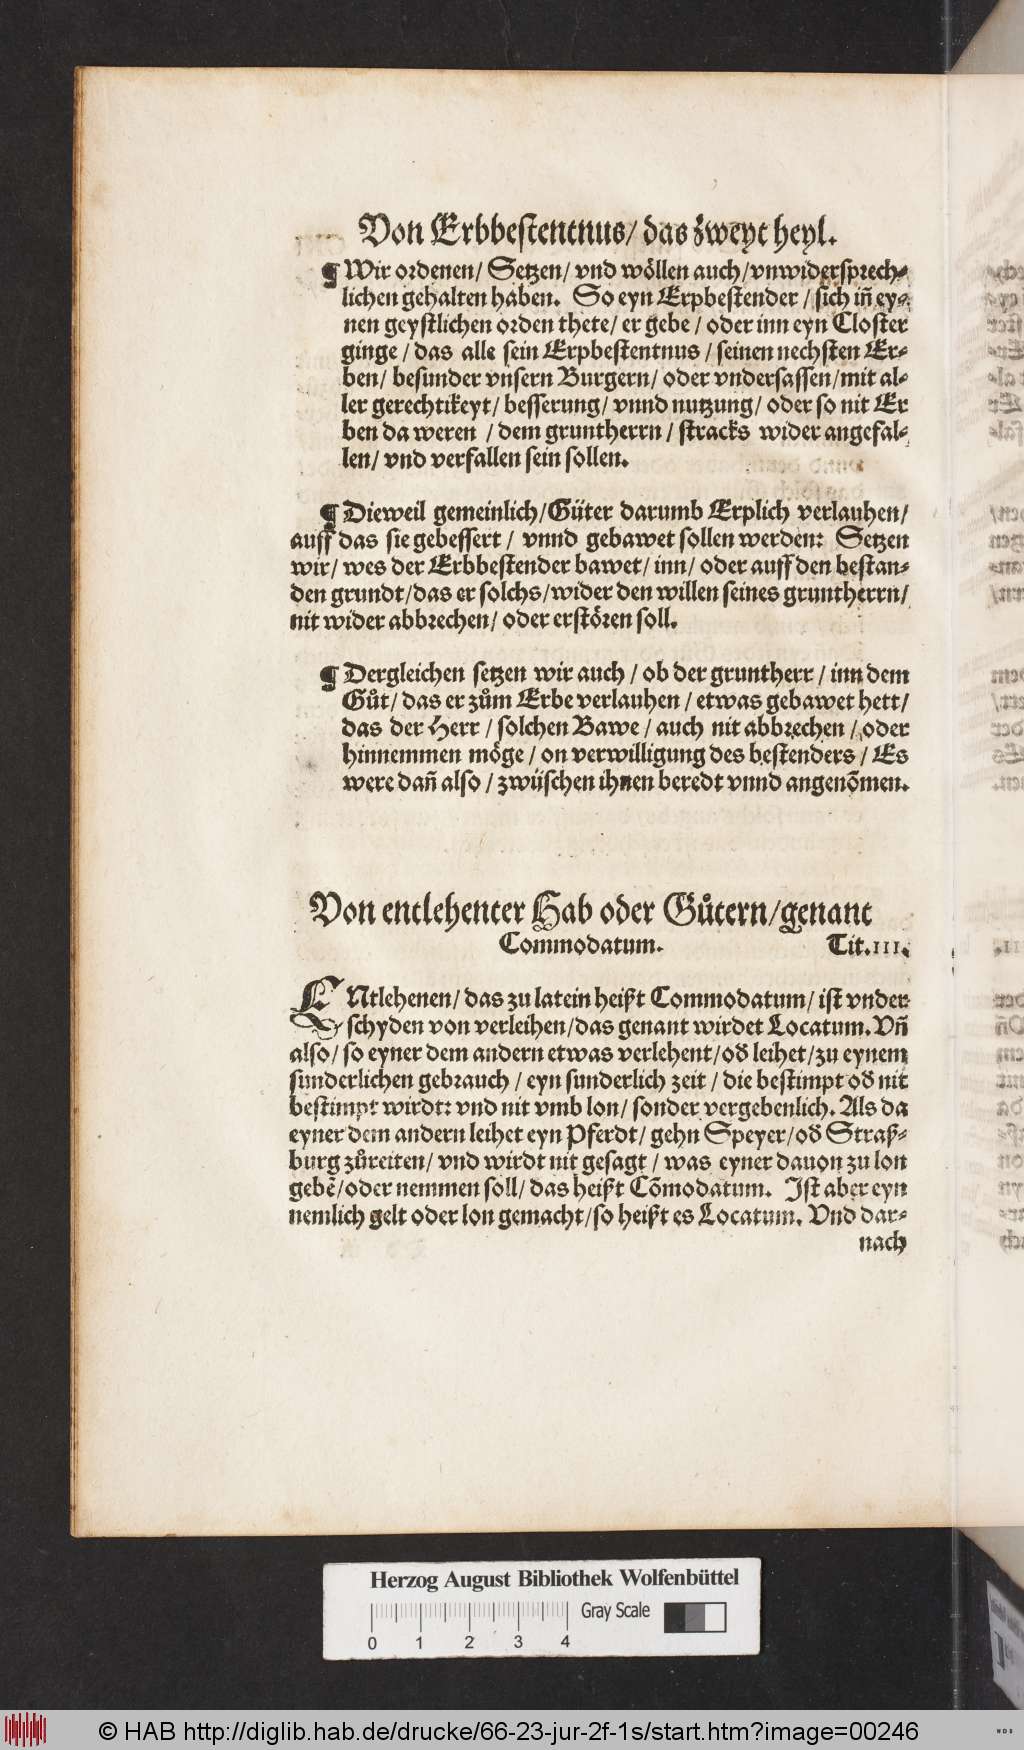 Von Erbbestentnus/ das zweyt heyl.
¶ Wir ordenen/ Setzen/ vnd wöllen auch/ vnwidersprech⸗
lichen gehalten haben. So eyn Erpbestender / sich iñ ey⸗
nen geystlichen orden thete/ er gebe / oder inn eyn Closter
ginge / das alle sein Erpbestentnus / seinen nechsten Er⸗
ben/ besunder vnsern Burgern/ oder vndersassen/ mit al⸗
ler gerechtikeyt/ besserung/ vnnd nutzung/ oder so nit Er
ben da weren / dem gruntherrn / stracks wider angefal⸗
len/ vnd verfallen sein sollen.
¶ Dieweil gemeinlich/ Güter darumb Erplich verlauhen/
auff das sie gebessert / vnnd gebawet sollen werden: Setzen
wir/ wes der Erbbestender bawet/ inn/ oder auff den bestan⸗
den grundt/ das er solchs/ wider den willen seines gruntherrn/
nit wider abbrechen/ oder erstören soll.
¶ Dergleichen setzen wir auch / ob der gruntherr / inn dem
Gůt/ das er zům Erbe verlauhen / etwas gebawet hett/
das der Herr / solchen Bawe / auch nit abbrechen / oder
hinnemmen möge / on verwilligung des bestenders / Es
were dañ also / zwüschen ihnen beredt vnnd angenõmen.
Von entlehenter Hab oder Gůtern/ genant
Commodatum. Tit. III.
ENtlehenen/ das zu latein heißt Commodatum/ ist vnder
schyden von verleihen/ das genant wirdet Locatum. Vñ
also/ so eyner dem andern etwas verlehent/ oď leihet/ zu eynem
sunderlichen gebrauch / eyn sunderlich zeit / die bestimpt oď nit
bestimpt wirdt: vnd nit vmb lon/ sonder vergebenlich. Als da
eyner dem andern leihet eyn Pferdt/ gehn Speyer/ oď Straß⸗
burg zůreiten/ vnd wirdt nit gesagt / was eyner dauon zu lon
gebẽ/ oder nemmen soll/ das heißt Cõmodatum. Ist aber eyn
nemlich gelt oder lon gemacht/ so heißt es Locatum. Vnd dar⸗
nach
Herzog August Bibliothek Wolfenbüttel
Gray Scale
0 1 2 3 4
© HAB http://diglib.hab.de/drucke/66-23-jur-2f-1s/start.htm?image=00246